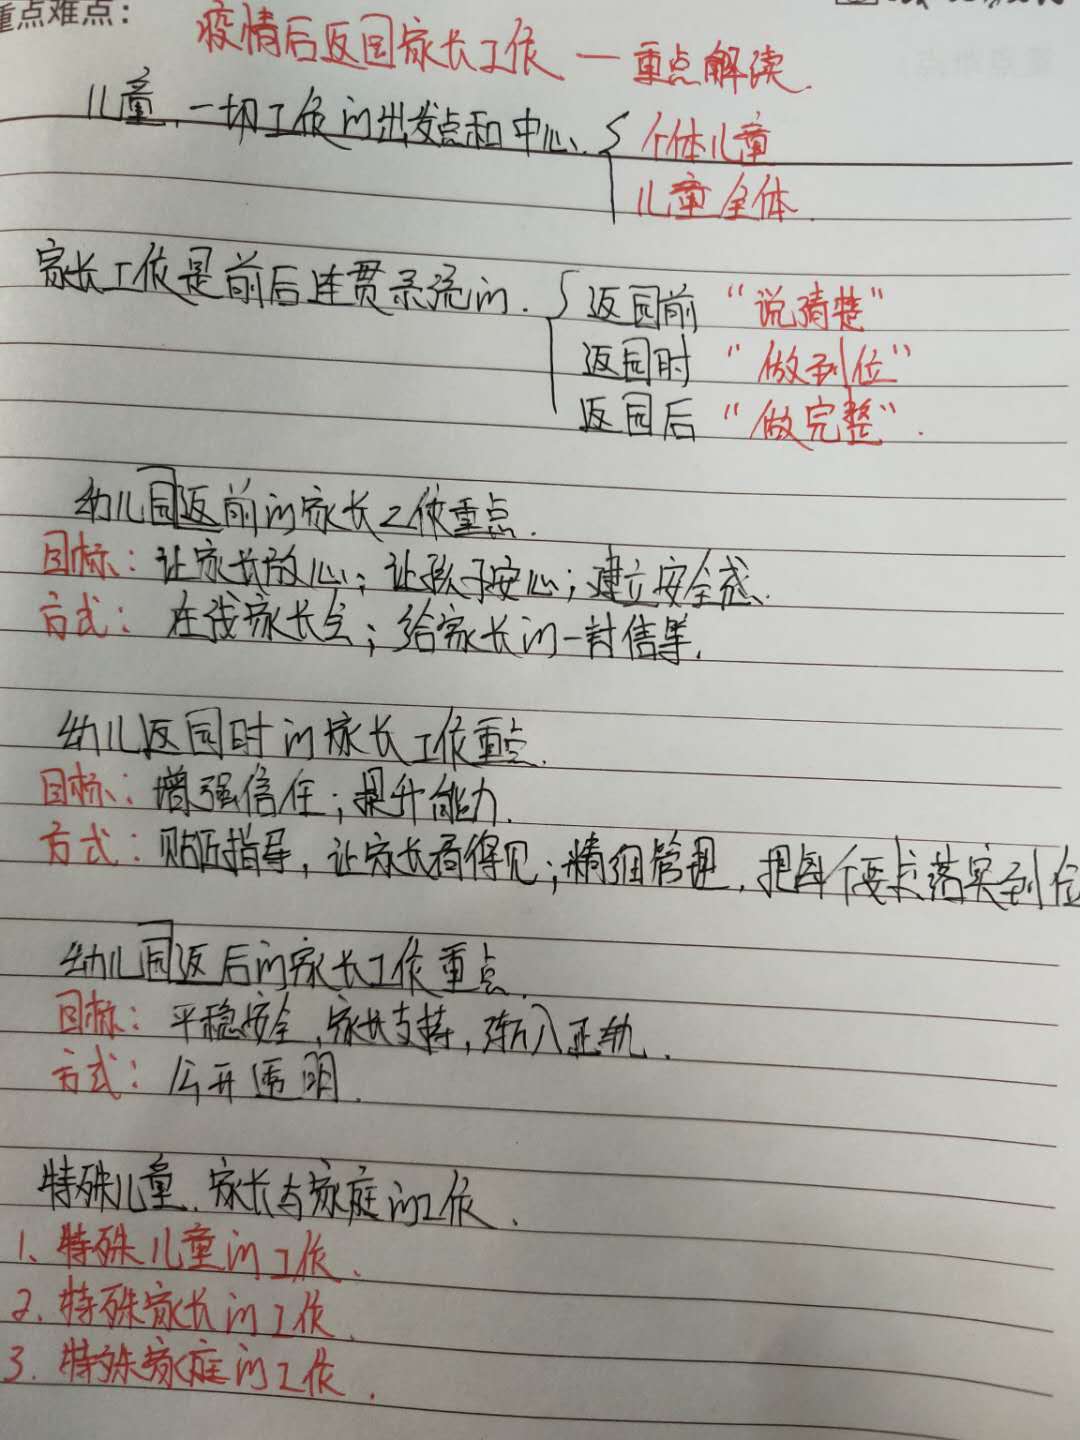 重点难点：
疫情后返园家长工作 — 重点解读.
儿童,一切工作的出发点和中心. { 个体儿童
儿童全体.
家长工作是前后连贯系统的. { 返园前 “说清楚”
返园时 “做到位”
返园后 “做完整”.
幼儿园返前的家长工作重点.
目标：让家长放心；让孩子安心；建立安全感.
方式：在线家长会；给家长的一封信等.
幼儿返园时的家长工作重点.
目标：增强信任；提升能力.
方式：贴近指导，让家长看得见；精细管理，把每个要求落实到位
幼儿园返后的家长工作重点.
目标：平稳安全，家长支持，渐入正轨.
方式：公开透明.
特殊儿童、家长与家庭的工作.
1、特殊儿童的工作.
2. 特殊家长的工作.
3. 特殊家庭的工作.